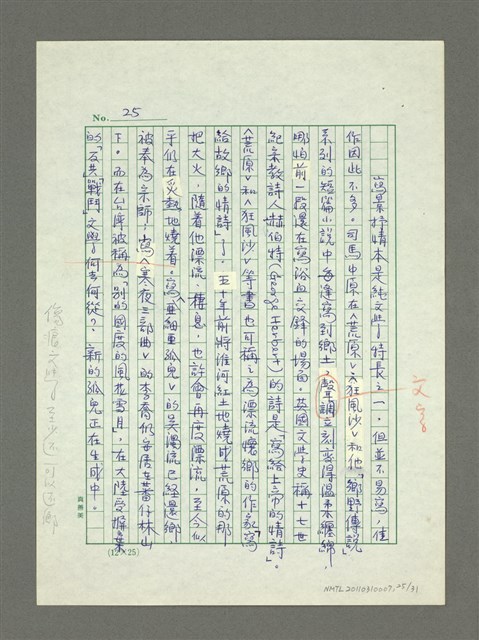 No. 25
寫景抒情本是純文學特長之一，但並不易寫，佳
作因此不多。司馬中原在《荒原》《狂風沙》和他「鄉野傳說」
系列的短篇小說中每逢寫到鄉土，聲調立刻變得溫柔纏綿，
哪怕前一段還在寫浴血交鋒的場面。英國文學史稱十七世
紀宗教詩人赫伯特(George Herbert)的詩是「寫給上帝的情詩」。
《荒原》和《狂風沙》等書也可稱之為漂流懷鄉的作家「寫
給故鄉的情詩」了。五十年前將淮河紅土地燒成荒原的那
把大火，隨着他漂流、棲息，也許會再度漂流，至今似
乎仍在炙熱地燒着。寫《亞細亞孤兒》的吳濁流已經還鄉，
被奉為宗師；寫《寒夜三部曲》的李喬仍安居在蕃仔林山
下。而在台灣被稱為「別的國度的風花雪月」，在大陸受摒棄
的「反共」「戰鬥」文學何去何從？新的孤兒正在生成中。
文字
傷痕文學至少還可以還鄉
(12×25)
NMTL20110310007, 25/31